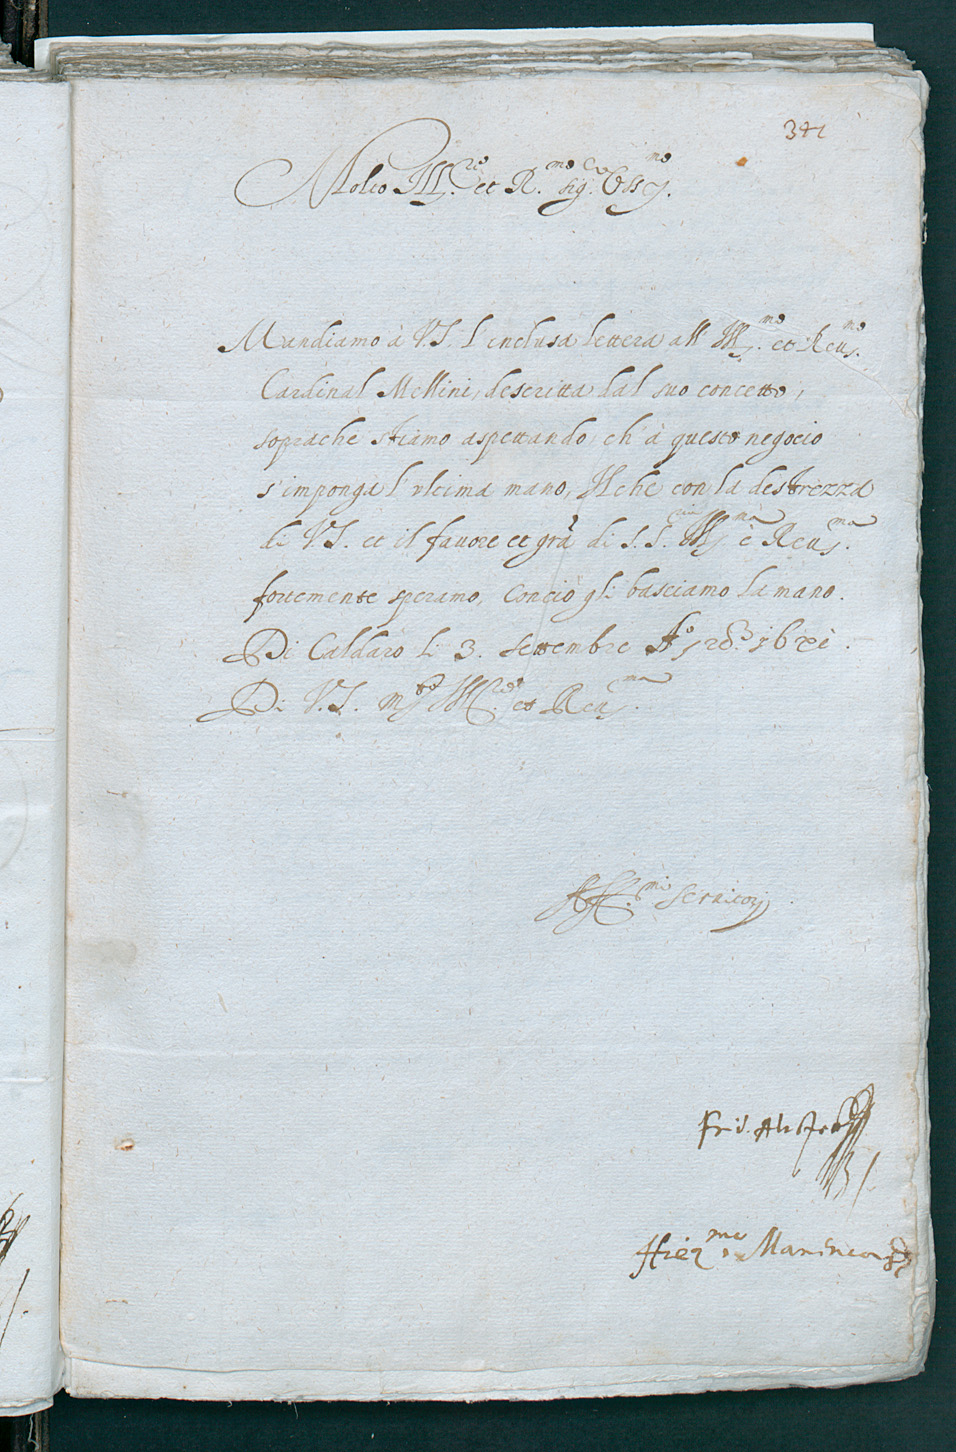 341
Molto Ill.re et R.mo Sig.r Oss.mo
Mandiamo à V.S. l'inclusa lettera all' Ill.mo et Reu.mo
Cardinal Mellini, descritta dal suo concetto,
soprache stiamo aspettando, ch' à questo negocio
s'imponga l'vltima mano, Ilche con la destrezza
di V.S. et il fauore et gra di S.S. Ill.ma è Reu.ma
fortemente speramo. Conciò gli basciamo la mano.
Di Caldaro li 3. Settembre
Di V.S. m.to Ill.re et Reu.ma
Aff.mi Seruitorj